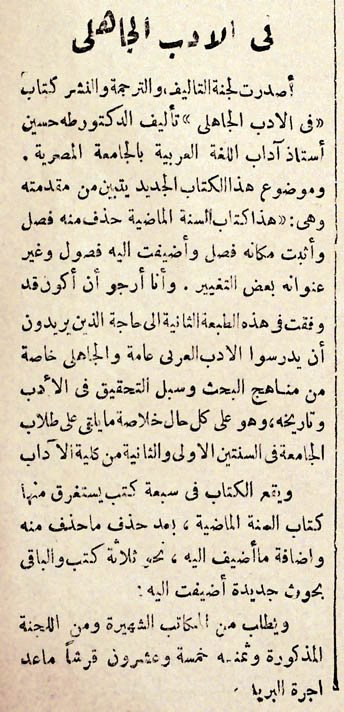 فى الادب الجاهلى
أصدرت لجنة التاليف والترجمة والنشر كتاب
«فى الادب الجاهلى» تأليف الدكتور طه حسين
أستاذ آداب اللغة العربية بالجامعة المصرية .
وموضوع هذا الكتاب الجديد يتبين من مقدمته
وهى: «هذا كتاب السنة الماضية حذف منه فصل
وأثبت مكانه فصل وأضيفت اليه فصول وغير
عنوانه بعض التغيير . وأنا أرجو أن أكون قد
وفقت فى هذه الطبعة الثانية الى حاجة الذين يريدون
أن يدرسوا الادب العربى عامة والجاهلى خاصة
من مناهج البحث وسبل التحقيق فى الأدب
وتاريخه، وهو على كل حال خلاصة ما يلقى على طلاب
الجامعة فى السنتين الاولى والثانية من كلية الآداب
ويقع الكتاب فى سبعة كتب يستغرق منها
كتاب السنة الماضية ، بعد حذف ماحذف منه
واضافة ماأضيف اليه ، نحو ثلاثة كتب والباقى
بحوث جديدة أضيفت اليه .
ويطلب من المكاتب الشهيرة ومن اللجنة
المذكورة وثمنه خمسة وعشرون قرشاً ماعد
اجرة البريد .